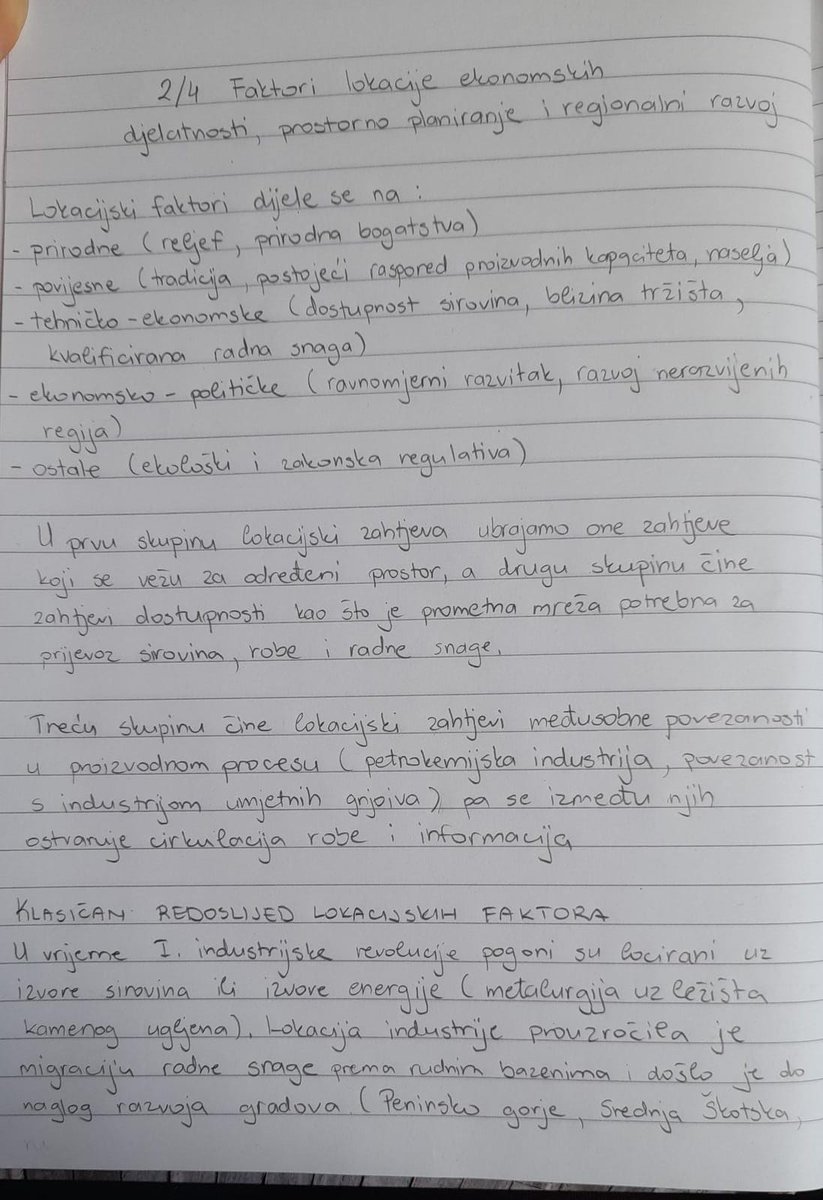 2/4 Faktori lokacije ekonomskih
djelatnosti, prostorno planiranje i regionalni razvoj
Lokacijski faktori dijele se na :
- prirodne (reljef, prirodna bogatstva)
- povijesne (tradicija, postojeći raspored proizvodnih kapaciteta, naselja)
- tehničko - ekonomske (dostupnost sirovina, blizina tržišta,
kvalificirana radna snaga)
- ekonomsko - političke (ravnomjerni razvitak, razvoj nerazvijenih
regija)
- ostale (ekološki i zakonska regulativa)
U prvu skupinu lokacijski zahtjeva ubrajamo one zahtjeve
koji se vežu za određeni prostor, a drugu skupinu čine
zahtjevi dostupnosti kao što je prometna mreža potrebna za
prijevoz sirovina, robe i radne snage.
Treću skupinu čine lokacijski zahtjevi međusobne povezanosti
u proizvodnom procesu (petrokemijska industrija, povezanost
s industrijom umjetnih gnjoiva) pa se između njih
ostvaruje cirkulacija robe i informacija
KLASIČAN REDOSLIJED LOKACIJSKIH FAKTORA
U vrijeme I. industrijske revolucije pogoni su locirani uz
izvore sirovina ili izvore energije (metalurgija uz ležišta
kamenog ugljena). Lokacija industrije prouzročila je
migraciju radne snage prema rudnim bazenima i došlo je do
naglog razvoja gradova (Peninsko gorje, Srednja Škotska,